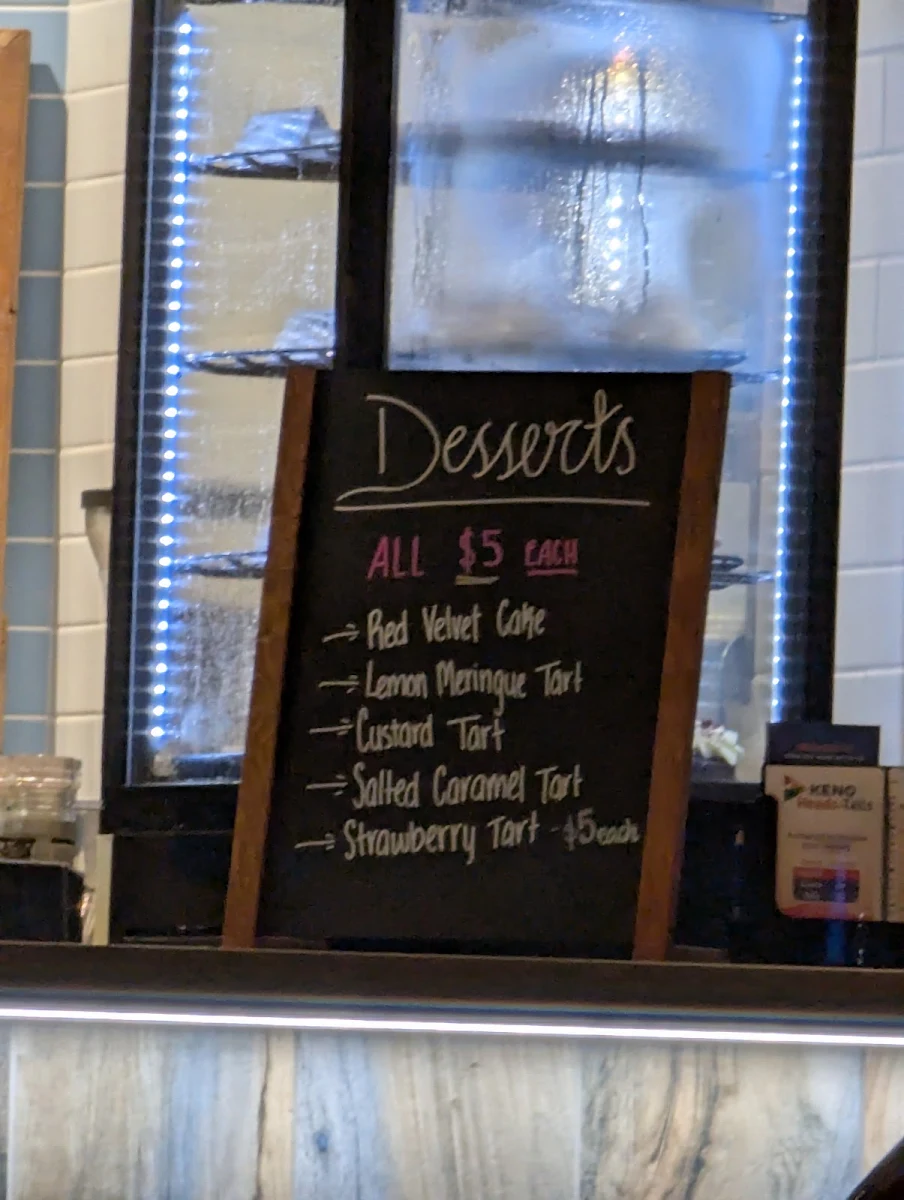 Desserts
ALL $5 EACH
→ Red Velvet Cake
→ Lemon Meringue Tart
→ Custard Tart
→ Salted Caramel Tart
→ Strawberry Tart - $5 each
KENO
Heads or Tails